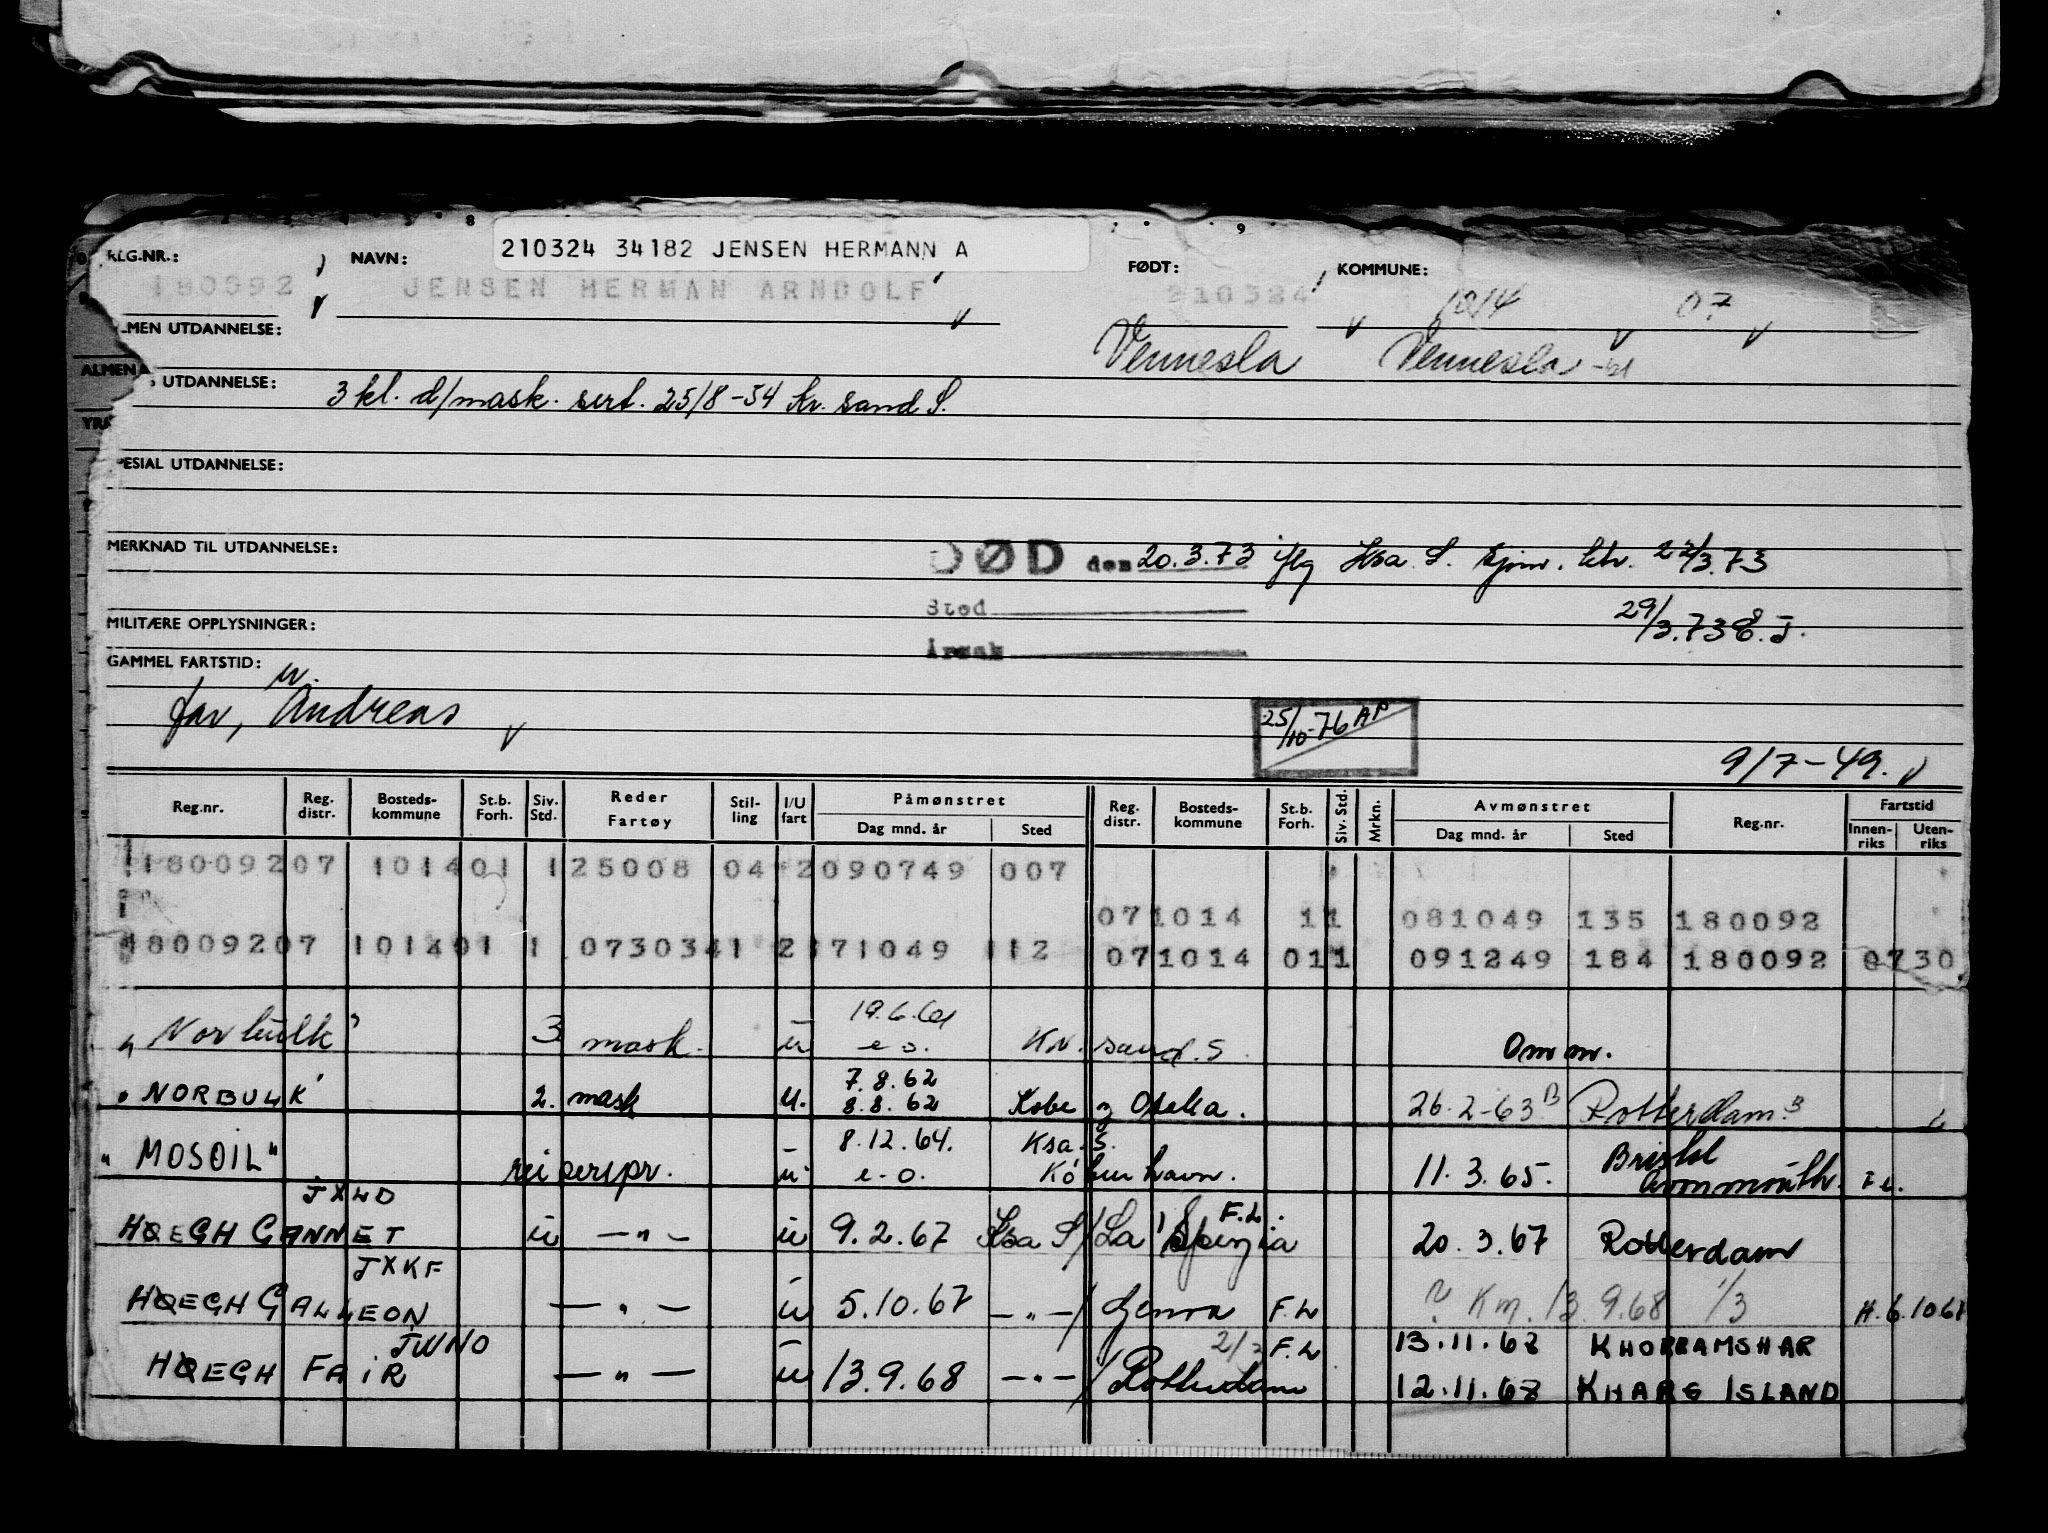 210324 34182 JENSEN HERMANN A
REG.NR.: NAVN: FØDT: KOMMUNE:
180092 JENSEN HERMAN ARNDOLF 210324 1014 07
LMEN UTDANNELSE:
Vennesla Vennesla
ALMEN
UTDANNELSE:
3 kl. d/mask. sert. 25/8-54 Kr. sand S.
YR
ESIAL UTDANNELSE:
MERKNAD TIL UTDANNELSE:
DØD den 20.3.73 iflg Ksa. S. 22/3.73
Sted
29/3.73
MILITÆRE OPPLYSNINGER:
Årsak
GAMMEL FARTSTID:
far, Andreas
25/10-76 AP
9/7-49.
Reg.nr. Reg. distr. Bosteds-kommune St.b. Forh. Siv. Std. Reder Fartøy Stil-ling I/U fart Påmønstret Dag mnd. år Sted Reg. distr. Bosteds-kommune St.b. Forh. Siv. Std. Mrkn. Avmønstret Dag mnd. år Sted Reg.nr. Fartstid Innen-riks Uten-riks
18009207 101401 125008 04 2 090749 007
071014 11 081049 135 180092
18009207 101401 1 0730341 2 171049 112 071014 011 091249 184 180092 0730
"Norbulk" 3 mask. u 19.6.61 e.o. Kr. sand. S. Omm.
"NORBULK" 2. mask U. 7.8.62 8.8.62 Kobe og Osaka. 26.2-63 Rotterdam
"MOSOIL" rei serepr. u 8.12.64. e.o. Ksa. S. København. 11.3.65. Bristol Avonmouth.
JXLD
HØEGH GANNET u — " — u 9.2.67 Ksa S/La Spezia F.L. 20.3.67 Rotterdam
JXKF
HØEGH GALLEON — " — u 5.10.67 — " —/Genoa F.L. ? Km. 13.9.68 1/3 H.6.10.67
JWNO
HØEGH FAIR — " — u 13.9.68 — " —/Rotterdam F.L. 13.11.68 KHORRAMSHAR
12.11.68 KHARG ISLAND